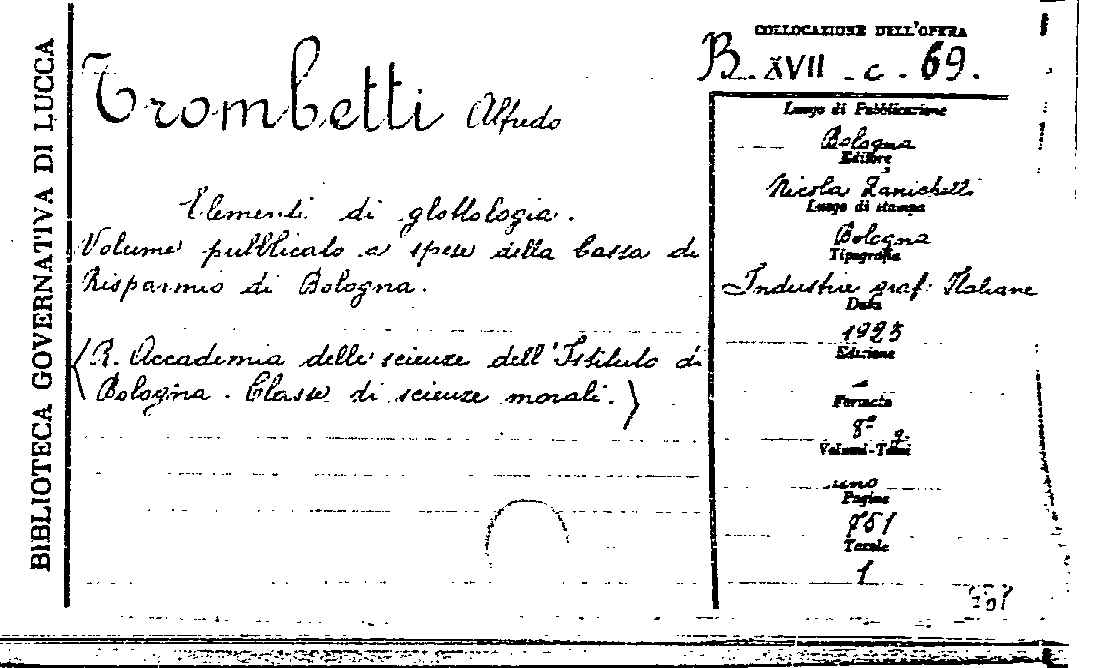 BIBLIOTECA GOVERNATIVA DI LUCCA
Trombetti Alfredo
Elementi di glottologia.
Volume pubblicato a spese della Cassa di
Risparmio di Bologna.
(R. Accademia delle scienze dell'Istituto di
Bologna. Classe di scienze morali.)
COLLOCAZIONE DELL'OPERA
B. XVII - c. 69.
Luogo di Pubblicazione
Bologna
Editore
Nicola Zanichelli
Luogo di stampa
Bologna
Tipografia
Industrie graf. Italiane
Data
1923
Edizione
-
Formato
8° g.
Volumi-Tomi
uno
Pagine
751
Tavole
1